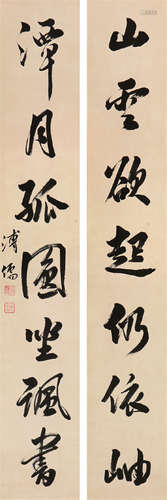 山雲欲起仍依岫
潭月孤圓坐諷書
溥儒